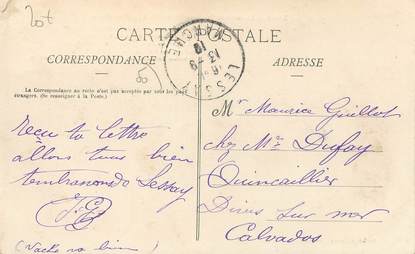 20t
CARTE POSTALE
CORRESPONDANCE
ADRESSE
La Correspondance au recto n'est pas acceptée par tous les pays
étrangers. (Se renseigner à la Poste.)
LESSAY
MANCHE
16
13 -8
10
Mr Maurice Guillot
chez Mr Dufay
Quincaillier
Dives sur mer
Calvados
Reçu ta lettre
allons tous bien
Lessay
(Vache va bien)